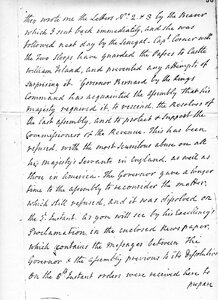 they wrote me the Letters Nos. 2 & 3 by the Bearer
which I sent back immediately, and she was
followed next day by the Senegal, Capt. Corner with
the Two Sloops have guarded the Passes to Castle
William Island, and prevented any attempts of
surprising it. Governor Bernard by the Kings
Command has acquainted the Assembly that his
Majesty required it, to rescind the Resolves of
the last Assembly, and to protect & support the
Commissioners of the Revenue. This has been
refused, with the most scandalous abuse on all
his Majesty's Servants in England, as well as
those in America. The Governor gave a longer
time to the Assembly to reconsider the matter,
which still refused, and it was dissolved on
the 1st Instant. as you will see by his Excellency's
Proclamation in the enclosed News paper,
which contains the messages between the
Governor & the Assembly previous to its Dissolution
On the 8th Instant orders were received here to
prepare